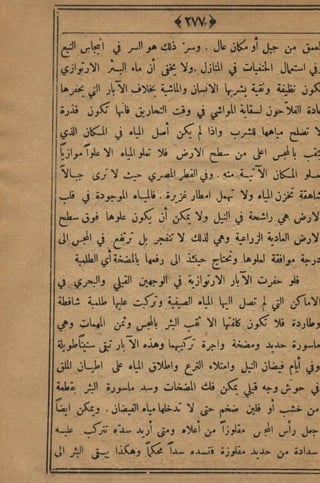 ﴿٢٧٧﴾
العمق من جبل أو مكان عال . وسرّ ذلك هو السر في انبجاس النبع
وفي استعمال الحنفيات في المنازل . ولا يخفى أن ماء البئر الارتوازي
تكون نظيفة ونقية يشربها الانسان والماشية بخلاف الآبار التي يحفرها
عادة الفلاحون لسقاية المواشي في وقت التحاريق فانها تكون قذرة
لا تصلح مياهها للشرب واذا لم يكن أصل المياه في المكان الذي
ينقب بالمجس اعلى من سطح الارض فلا تعلو المياه الا علواً موازياً
لعلو المكان الآتية منه . وفي القطر المصري حيث لا ترى جبالاً
شاهقة تخزن المياه ولا تهمل امطار غزيرة . فالمياه الموجودة في قلب
الارض هي راشحة في النيل ولا يمكن أن يكون علوها فوق سطح
الارض العادية الزراعية وهي لذلك لا تنفجر بل ترتفع في المجس الى
درجة موافقة لعلوها وتحتاج حينئذ الى رفعها بالمضخة أي الطلمبة
فلو حفرت الآبار الارتوازية في الوجهين القبلي والبحري في
الاماكن التي لم تصل اليها المياه الصيفية وتركبت عليها طلمبة شافطة
وطاردة فلا تكون كلفتها الا ثقب البئر بالمجس وثمن المهمات وهي
ماسورة حديد ومضخة واجرة تركيبها وهذه الآبار تبقى سنيناً طويلة
وفي أيام فيضان النيل وامتلاء الترع واطلاق المياه على اطيان الملق
في حوش وجه قبلي يمكن فك المضخات وسد ماسورة البئر بقطعة
من خشب أو فلين ضخم حتى لا تدخلها مياه الفيضان . ويمكن ايضاً
جعل رأس المجس مقلوزاً من أعلاه ومتى أريد سدّه تتركب عليه
سدادة من حديد مقلوزة فتسده سداً محكماً وهكذا يبقى البئر الى